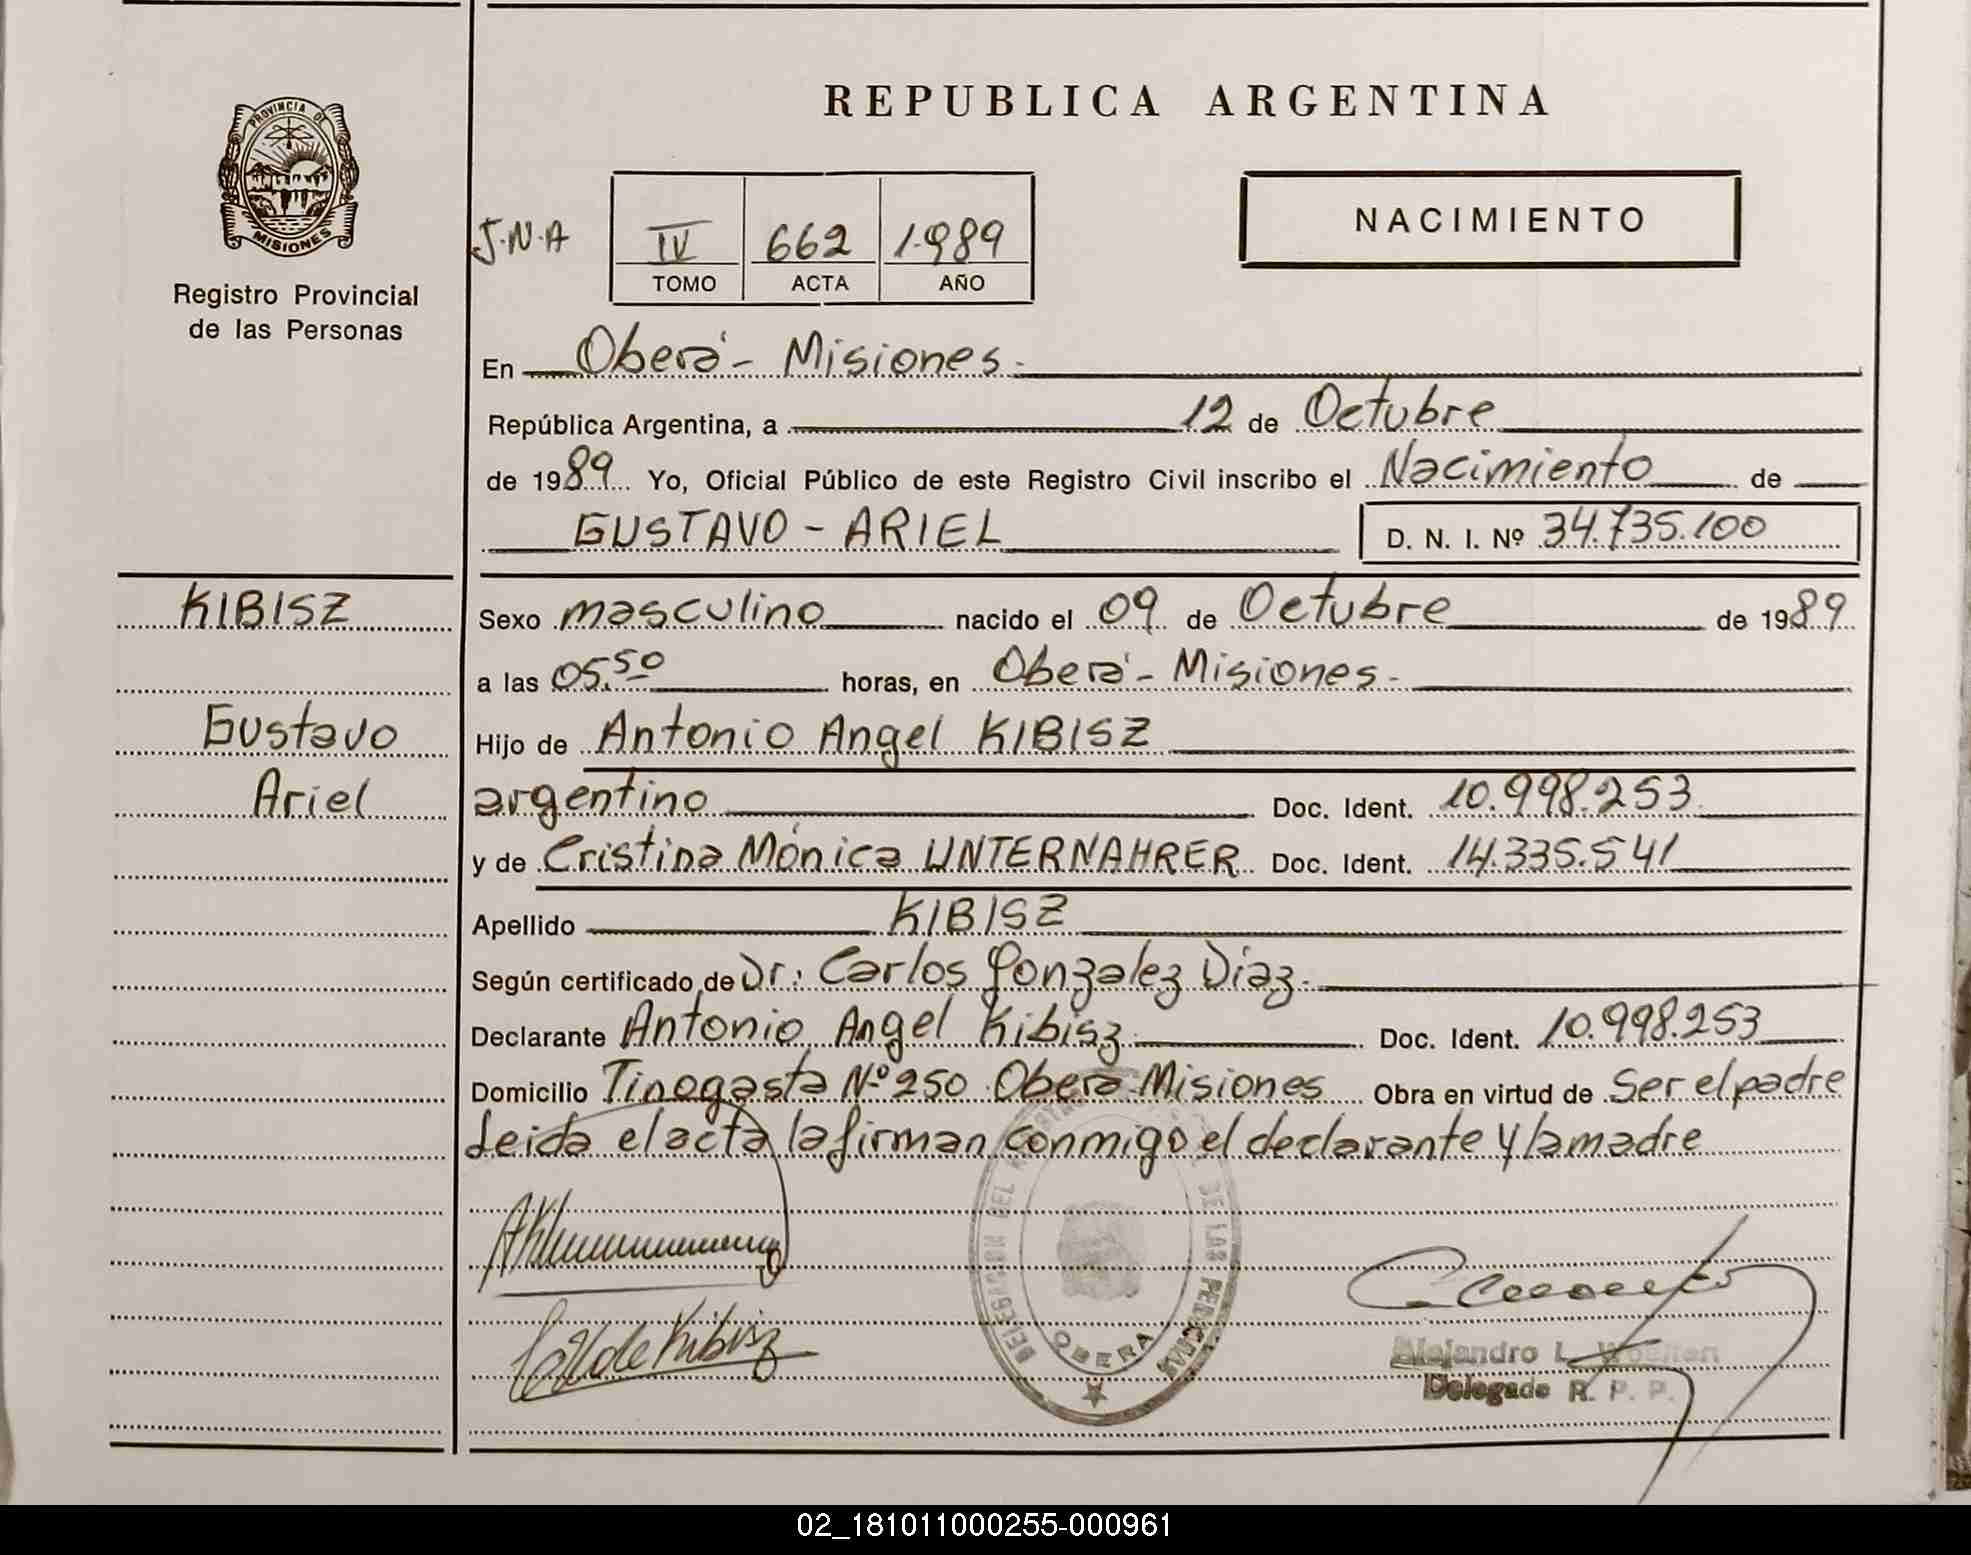 REPUBLICA ARGENTINA
PROVINCIA DE
MISIONES
Registro Provincial
de las Personas
J.N.A
IV 662 1.989
TOMO ACTA AÑO
NACIMIENTO
En Oberá - Misiones.
República Argentina, a 12 de Octubre
de 1989 Yo, Oficial Público de este Registro Civil inscribo el Nacimiento de
GUSTAVO - ARIEL D. N. I. Nº 34.735.100
KIBISZ
Gustavo
Ariel
Sexo masculino nacido el 09 de Octubre de 1989
a las 05.50 horas, en Oberá - Misiones.
Hijo de Antonio Angel KIBISZ
argentino Doc. Ident. 10.998.253
y de Cristina Mónica UNTERNAHRER Doc. Ident. 14.335.541
Apellido KIBISZ
Según certificado de Dr: Carlos Gonzalez Díaz.
Declarante Antonio Angel Kibisz Doc. Ident. 10.998.253
Domicilio Tinogasta Nº 250 Oberá Misiones Obra en virtud de Ser el padre
Leida el acta la firman conmigo el declarante y la madre
DELEGACION DEL DE LAS PERSONAS
OBERA
de Kibisz
Alejandro L.
Delegado R. P. P.
02_181011000255-000961